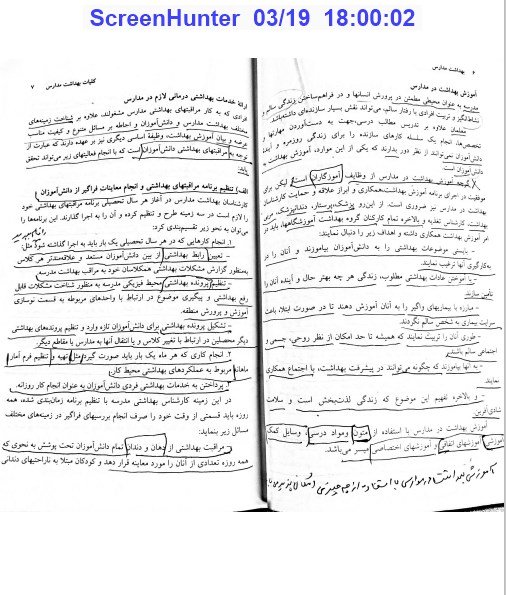 ScreenHunter 03/19 18:00:02
۶ بهداشت مدارس
آموزش بهداشت در مدارس
مدرسه به عنوان محیطی مطمئن در پرورش انسانها و در فراهم‌ساختن زندگی سالم و
نشاط‌انگیز و تربیت افرادی با رفتار سالم، می‌تواند نقش بسیار سازنده‌ای داشته‌باشد.
معلمان علاوه بر تدریس مطالب درسی، جهت به دست‌آوردن مهارتها و
تخصص‌ها، انجام یک سلسله کارهای سازنده را برای زندگی روزمره و آینده
دانش‌آموزان نیز باید از نظر دور بدارند که یکی از این موارد، آموزش بهداشت به
دانش‌آموزان است.
اگرچه آموزش بهداشت در مدارس از وظایف آموزگاران است لیکن برای
موفقیت در اجرای برنامه آموزش بهداشت، همکاری و ابراز علاقه و حمایت کارشناسان
بهداشت در مدارس نیز ضروری است. از این‌رو پزشک، پرستار، دندانپزشک، مربی
بهداشت، کارشناس تغذیه و بالاخره تمام کارکنان گروه بهداشت آموزشگاهها، باید در
امر آموزش بهداشت همکاری داشته و اهداف زیر را دنبال نمایند:
- بایستی موضوعات بهداشتی را به دانش‌آموزان بیاموزند و آنان را در
به‌کارگیری آنها ترغیب نمایند.
- با آموختن عادات بهداشتی مطلوب، زندگی هر چه بهتر حال و آینده آنان را
تأمین سازند.
- مبارزه با بیماریهای واگیر را به آنان آموزش دهند تا در صورت ابتلا، باعث
سرایت بیماری به شخص سالم نگردند.
- طوری آنان را تربیت نمایند که همیشه تا حد امکان از نظر روحی، جسمی و
اجتماعی سالم باشند.
- به آنها بیاموزند که چگونه می‌توانند در پیشرفت بهداشت، با اجتماع همکاری
نمایند.
- و بالاخره تفهیم این موضوع که زندگی لذت‌بخش است و سلامت
شادی‌آفرین.
آموزش بهداشت در مدارس با استفاده از متون ومواد درسی، وسایل کمک
آموزشی، آموزشهای اتفاقی و آموزشهای اختصاصی میسر می‌باشد.
آموزش بهداشت در مدارس با استفاده از چه چیزی امکان پذیر می‌باشد
کلیات بهداشت مدارس ۷
ارائه خدمات بهداشتی درمانی لازم در مدارس
افرادی که به کار مراقبتهای بهداشتی مدارس مشغولند، علاوه بر شناخت زمینه‌های
مختلف بهداشت مدارس و دانش‌آموزان و احاطه بر مسائل متنوع و کیفیت مناسب
عرضه و بیان آموزش بهداشت، وظیفه اساسی دیگری نیز بر عهده دارند که عبارت از
توجه به مراقبتهای بهداشتی دانش‌آموزان است که با انجام فعالیتهای زیر می‌تواند تحقق
یابد:
الف) تنظیم برنامه مراقبتهای بهداشتی و انجام معاینات فراگیر از دانش‌آموزان
کارشناسان بهداشت مدارس در آغاز هر سال تحصیلی برنامه مراقبتهای بهداشتی خود
را لازم است در سه زمینه طرح و تنظیم کرده و آن را به اجرا گذارند. این برنامه‌ها را
می‌توان به نحو زیر تقسیم‌بندی کرد:
۱. انجام کارهایی که در هر سال تحصیلی یک بار باید به اجرا گذاشته شود مثل:
- تعیین رابط بهداشتی از بین دانش‌آموزان مستعد و علاقه‌مندتر هر کلاس
به‌منظور گزارش مشکلات بهداشتی همکلاسان خود به مراقب بهداشت مدرسه
- تنظیم پرونده بهداشتی محیط فیزیکی مدرسه به منظور شناخت مشکلات قابل
رفع بهداشتی و پیگیری موضوع در ارتباط با واحدهای مربوطه به قسمت نوسازی
آموزش و پرورش منطقه.
- تشکیل پرونده بهداشتی برای دانش‌آموزان تازه وارد و تنظیم پرونده‌های بهداشتی
دیگر محصلین در ارتباط با تغییر کلاس و یا انتقال آنها به مدارس یا مقاطع دیگر.
۲. انجام کاری که هر ماه یک بار باید صورت گیرد مثل تهیه و تنظیم فرم آمار
ماهانه مربوط به عملکردهای بهداشتی محیط کار.
۳. پرداختن به خدمات بهداشتی فردی دانش‌آموزان به عنوان انجام کار روزانه.
در این زمینه کارشناس بهداشتی مدرسه با تنظیم برنامه زمان‌بندی شده، همه
روزه باید قسمتی از وقت خود را صرف انجام بررسیهای فراگیر در زمینه‌های مختلف
مسائل زیر بنماید:
- مراقبت بهداشتی از دهان و دندان تمام دانش‌آموزان تحت پوشش به نحوی که
همه روزه تعدادی از آنان را مورد معاینه قرار دهد و کودکان مبتلا به ناراحتیهای دندانی